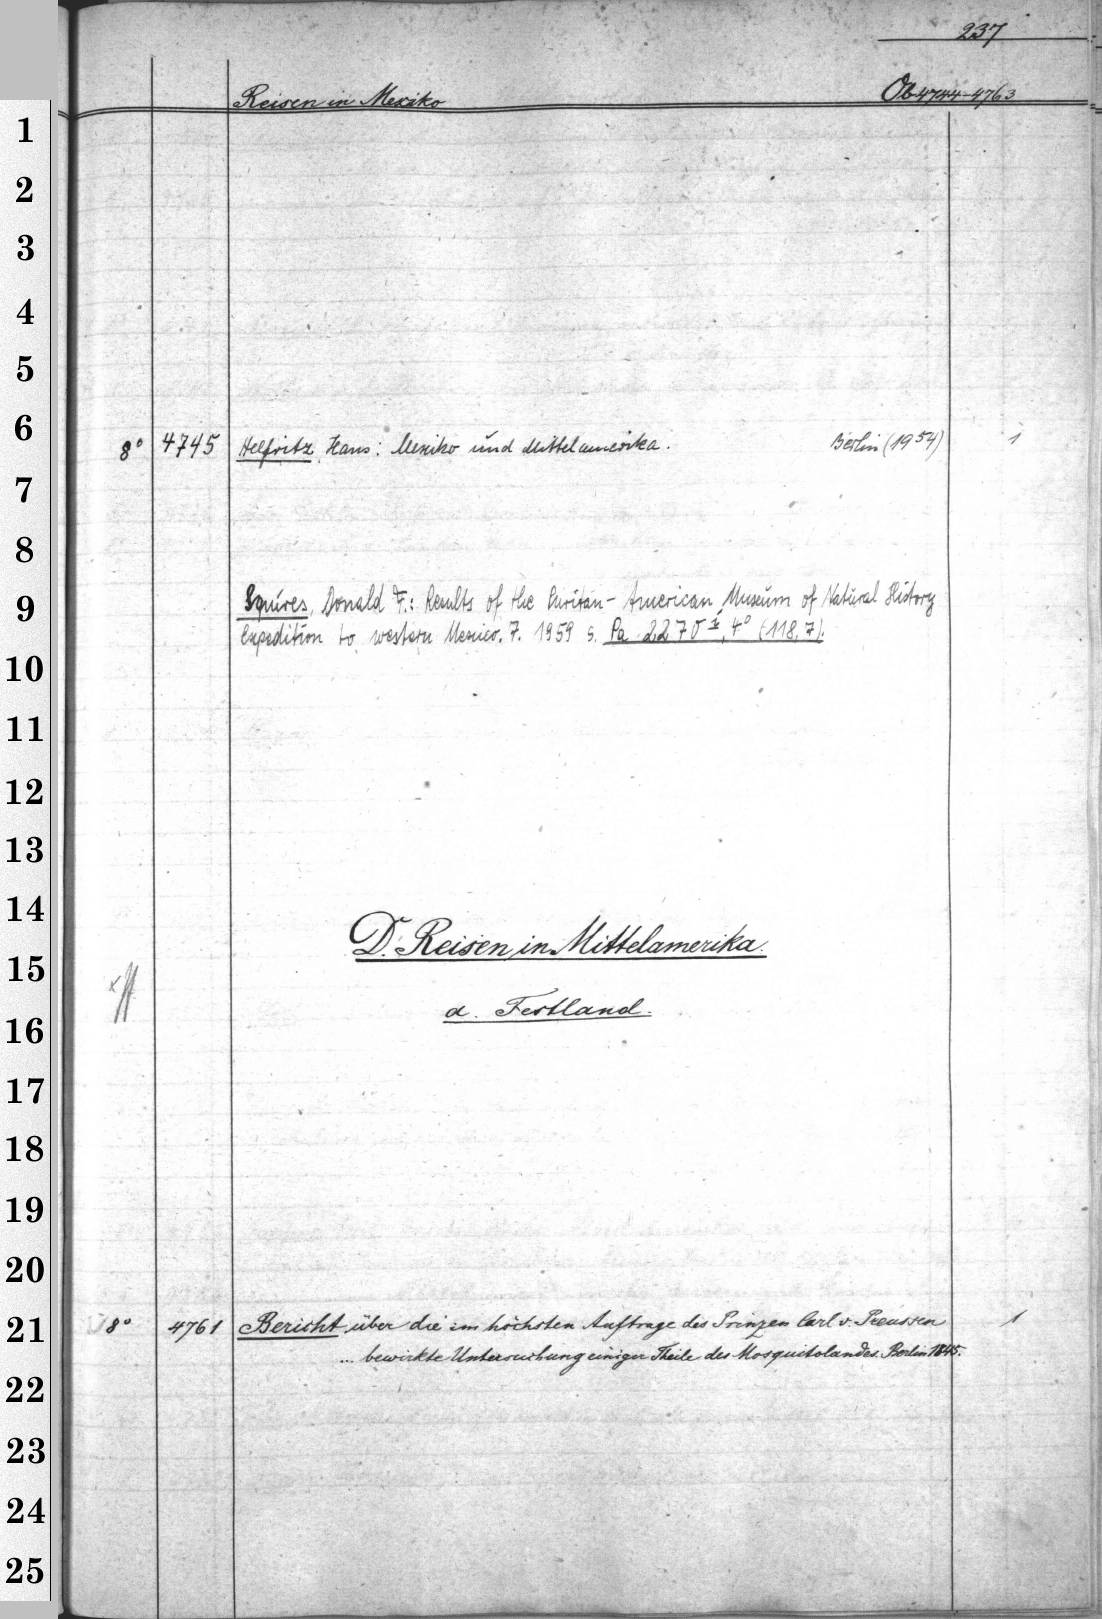 237
Reisen in Mexiko Ob 4744-4763
1
2
3
4
5
6
8° 4745 Helfritz, Hans: Mexiko und Mittelamerika. Berlin (1954) 1
7
8
9
Squires, Donald F.: Results of the Puritan-American Museum of Natural History
Expedition to western Mexico. 7. 1959 s. Pa 2270 4° (118,7).
10
11
12
13
14
D. Reisen in Mittelamerika.
15
a. Festland.
16
17
18
19
20
21
8° 4761 Bericht über die im höchsten Auftrage des Prinzen Carl v. Preussen 1
... bewirkte Untersuchung einiger Theile des Mosquitolandes. Berlin 1845.
22
23
24
25